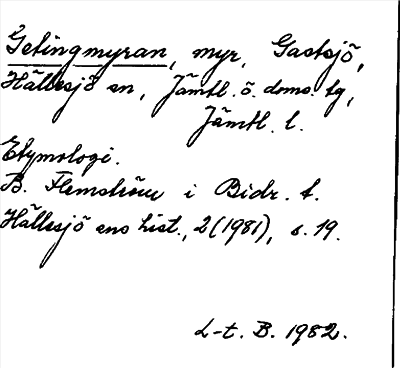 Getingmyran, myr, Gastsjö,
Hällesjö sn, Jämtl. ö. doms. tg,
Jämtl. l.
Etymologi.
B. Flemström i Bidr. t.
Hällesjö sns hist., 2 (1981), s. 19.
L-t. B. 1982.